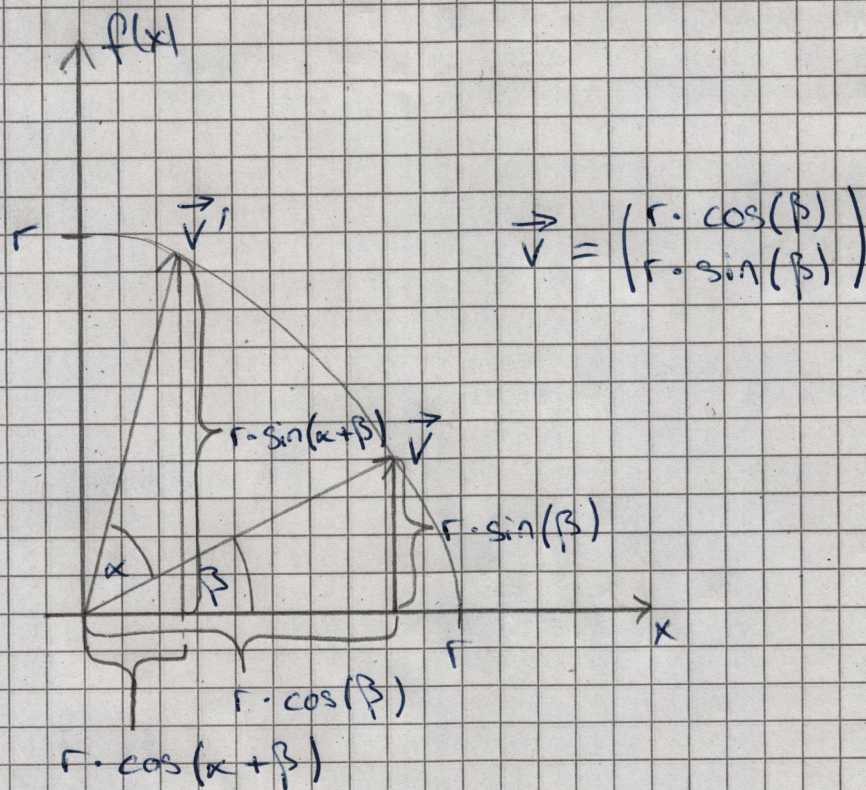 f(x)
r
v⃗'
v⃗ = (r · cos(β)
r · sin(β))
r · sin(α+β)
v⃗
r · sin(β)
α
β
x
r
r · cos(β)
r · cos(α + β)